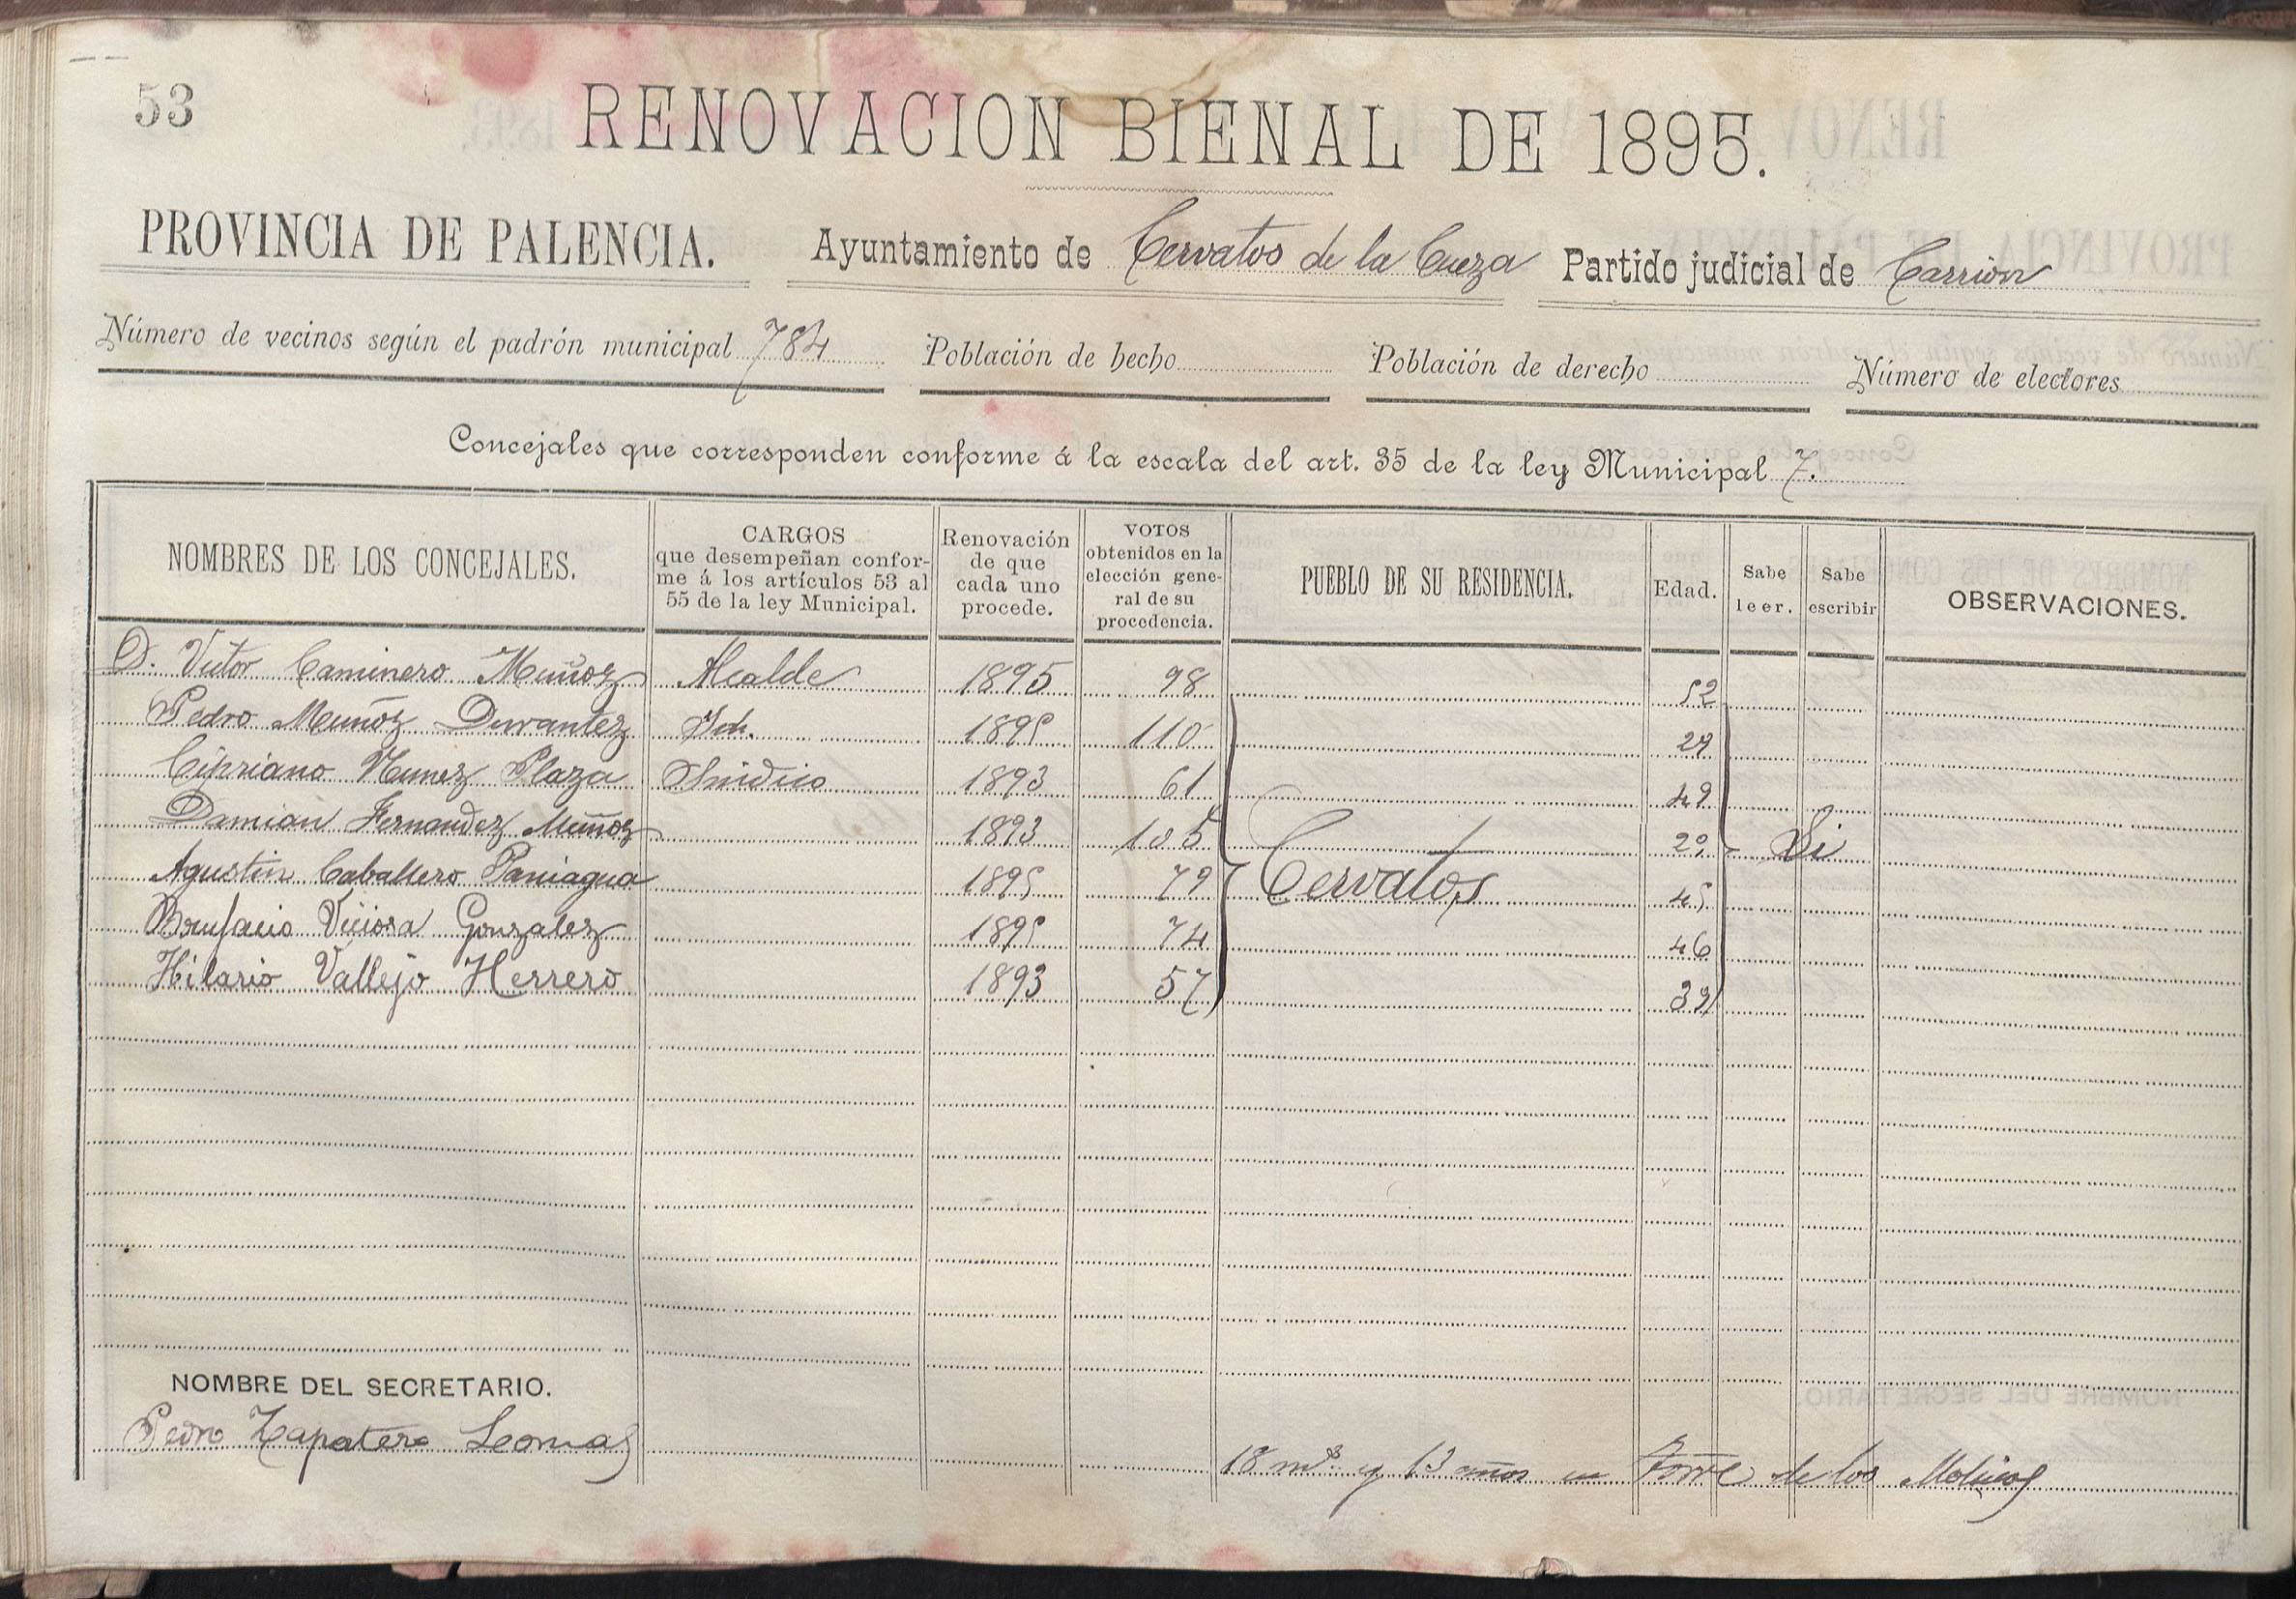 53
RENOVACION BIENAL DE 1895.
PROVINCIA DE PALENCIA. Ayuntamiento de Cervatos de la Cueza Partido judicial de Carrion
Número de vecinos según el padrón municipal 784 Población de hecho Población de derecho Número de electores
Concejales que corresponden conforme á la escala del art. 35 de la ley Municipal 7.
NOMBRES DE LOS CONCEJALES.
CARGOS
que desempeñan confor-
me á los artículos 53 al
55 de la ley Municipal.
Renovación
de que
cada uno
procede.
VOTOS
obtenidos en la
elección gene-
ral de su
procedencia.
PUEBLO DE SU RESIDENCIA.
Edad.
Sabe
leer.
Sabe
escribir
OBSERVACIONES.
D. Victor Caminero Muñoz Alcalde 1895 98 52
Pedro Muñoz Durantez 1895 110 29
Cipriano Nunez Plaza Sindico 1893 61 49
Damian Fernandez Muñoz 1893 105 29 Si
Agustin Caballero Paniagua 1895 79 Cervatos 45
Bonifacio Viciosa Gonzalez 1895 74 46
Hilario Vallejo Herrero 1893 57 39
NOMBRE DEL SECRETARIO.
Pedro Zapatero Leomas
18 ms y 13 años en Torre de los Molinos